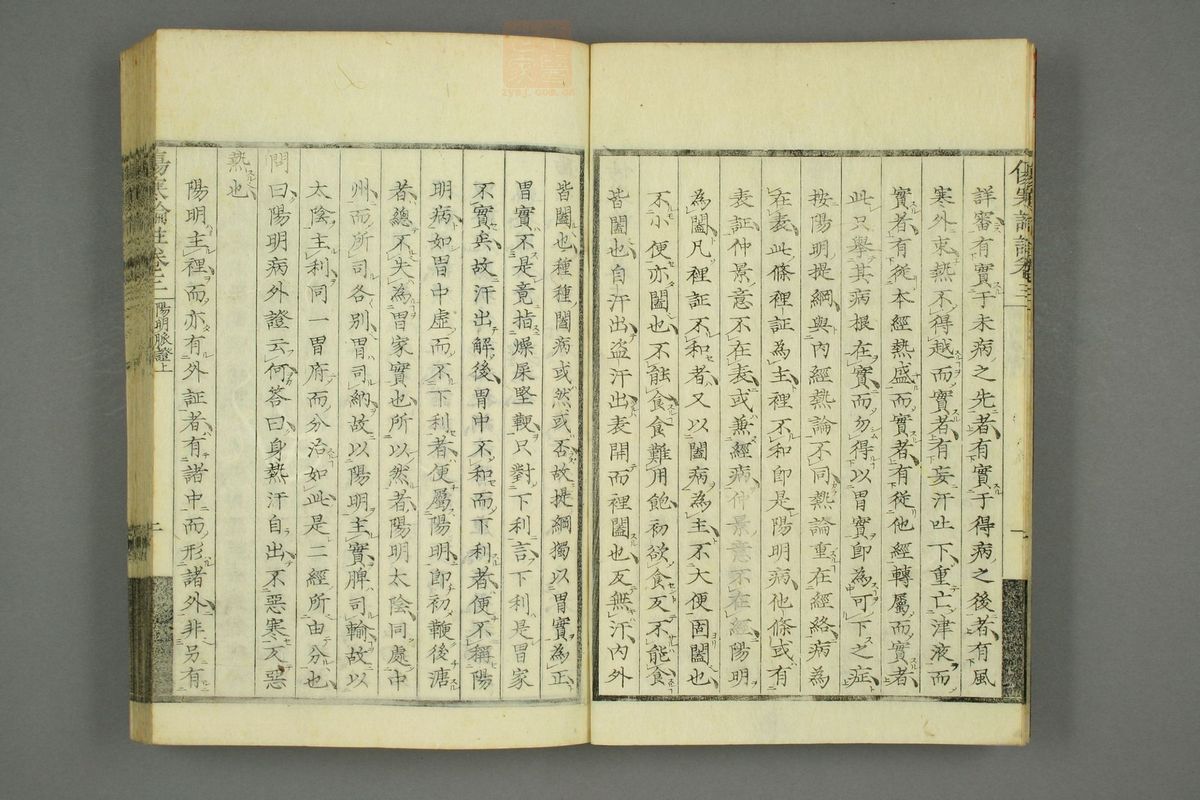 詳審有實于未病之先者有實于得病之後者有風
寒外束熱不得越而實者有妄汗吐下重亡津液而
實者有從本經熱盛而實者有從他經轉屬而實者
此只擧其病根在實而勿得以胃實卽為可下之症
按陽明提綱與內經熱論不同熱論重在經絡病為
在表此條裡証為主裡不和卽是陽明病他條或有
表証仲景意不在表或兼經病仲景意不在經陽明
為闔凡裡証不和者又以闔病為主不大便固闔也
不小便亦闔也不能食食難用飽初欲食反不能食
皆闔也自汗出盗汗出表開而裡闔也反無汗內外
皆闔也種種闔病或然或否故提綱獨以胃實為正
胃實不是竟指燥屎堅鞕只對下利言下利是胃家
不實矣故汗出解後胃中不和而下利者便不稱陽
明病如胃中虛而不下利者便屬陽明卽初鞕後溏
者總不失為胃家實也所以然者陽明太陰同處中
州而所司各別胃司納故以陽明主實脾司輸故以
太陰主利同一胃府而分治如此是二經所由分也
問曰陽明病外證云何答曰身熱汗自出不惡寒反惡
熱也
陽明主裡而亦有外証者有諸中而形諸外非另有
傷寒論註卷三
陽明脉證上
zysj.com.cn